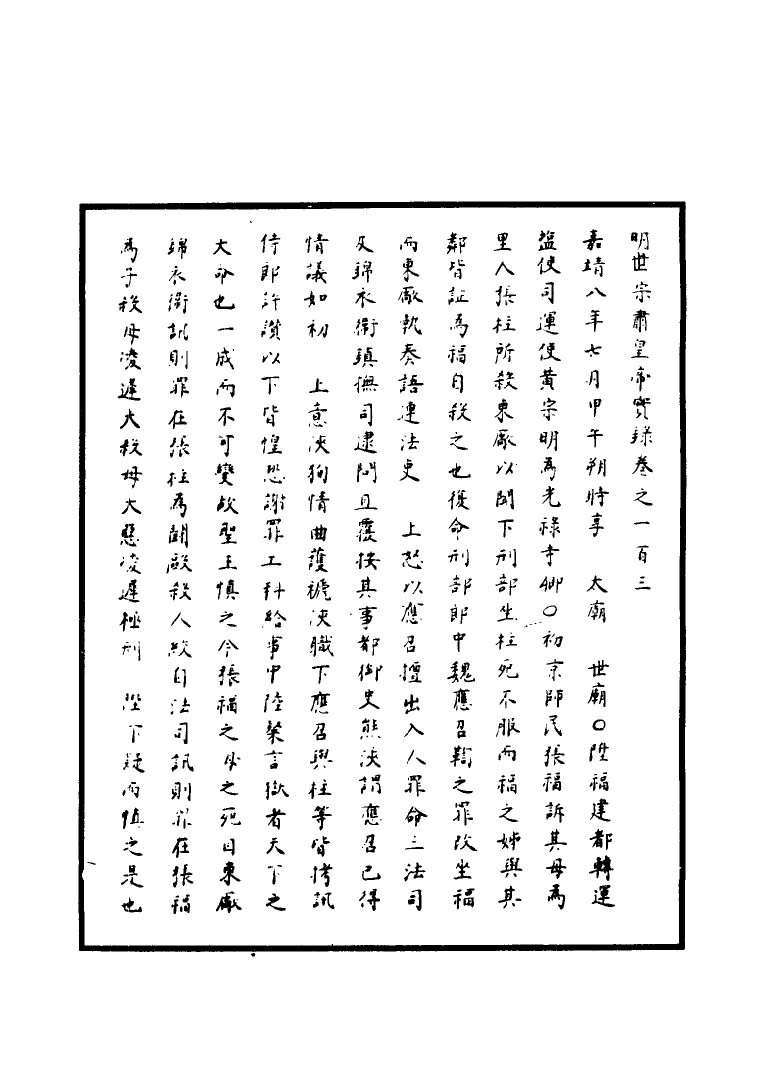 明世宗肅皇帝實錄卷之一百三
嘉靖八年七月甲午朔時享　太廟　世廟○陞福建都轉運
鹽使司運使黃宗明為光祿寺卿○初京師民張福訴其母為
里人張柱所殺東廠以聞下刑部坐柱死不服而福之姊與其
鄰皆証為福自殺之也復命刑部郎中魏應召鞫之罪改坐福
而東廠執奏語連法吏　上怒以應召擅出入人罪命三法司
及錦衣衛鎮撫司逮問且覆按其事都御史熊浹謂應召已得
情議如初　上意浹狥情曲護褫浹職下應召與柱等皆拷訊
侍郎許讚以下皆惶恐謝罪工科給事中陸粲言獄者天下之
大命也一成而不可變故聖王慎之今張福之母之死自東廠
錦衣衛訊則罪在張柱為鬬毆殺人絞自法司訊則罪在張福
為子殺母凌遲夫殺母大惡凌遲極刑　陛下疑而慎之是也